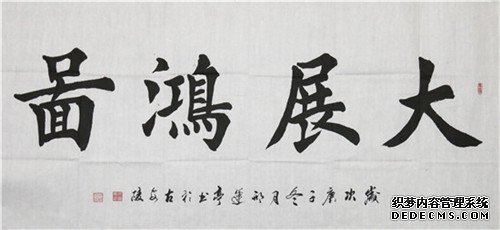 大展鴻圖
歲次庚子冬月 书於古
织梦内容管理系统
DEDECMS.COM